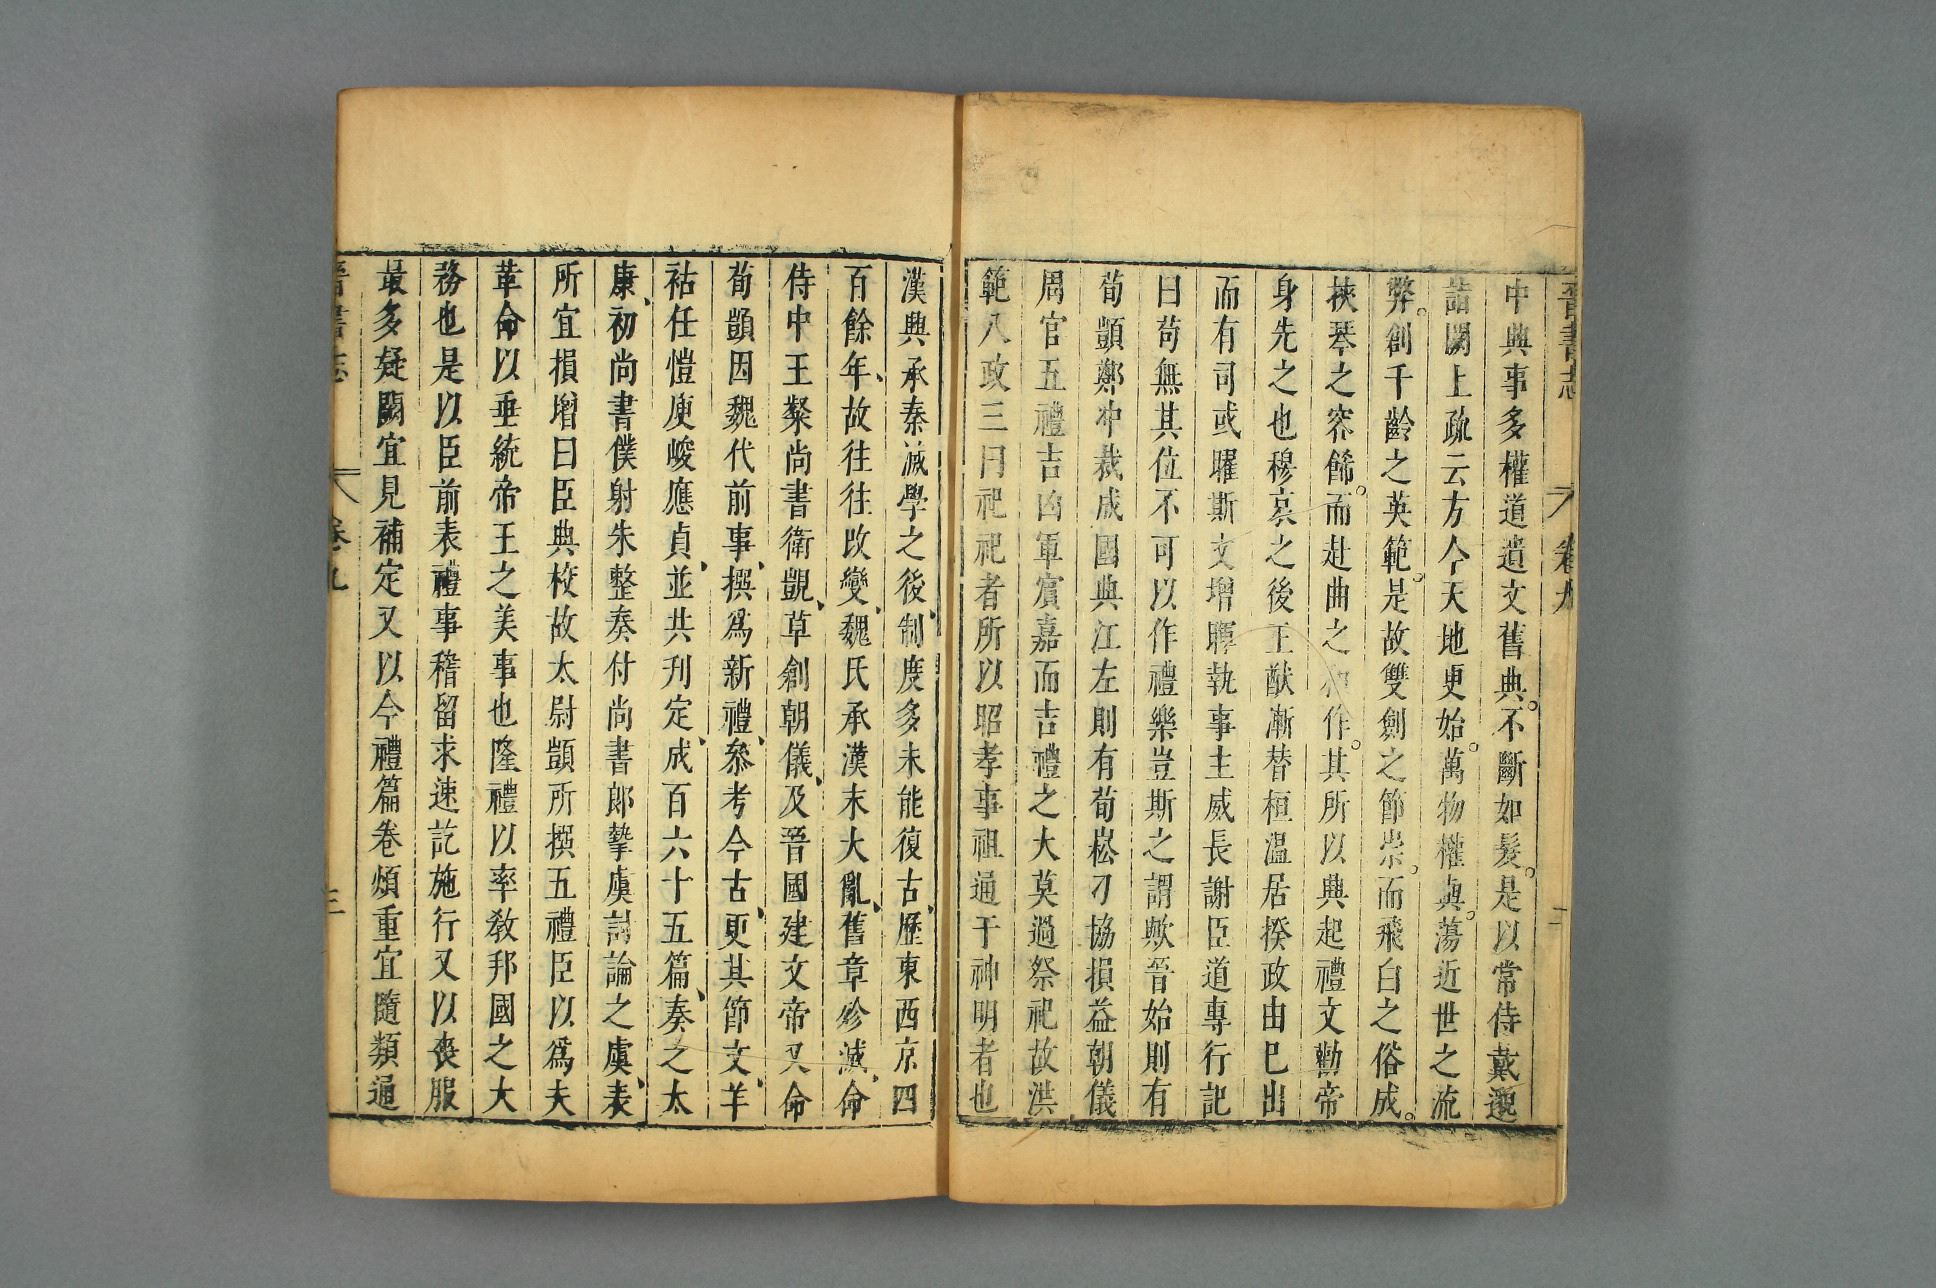 晉書志 卷九 二
中興事多權道遺文舊典不斷如髮是以常侍戴邈
詣闕上疏云方今天地更始萬物權輿蕩近世之流
弊創千齡之英範是故雙劍之節崇而飛白之俗成
挾琴之容飾而赴曲之和作其所以興起禮文勸帝
身先之也穆哀之後王猷漸替桓溫居揆政由已出
而有司或曜斯文增暉執事主威長謝臣道專行記
曰苟無其位不可以作禮樂豈斯之謂歟晉始則有
荀顗鄭冲裁成國典江左則有荀崧刁協損益朝儀
周官五禮吉凶軍賓嘉而吉禮之大莫過祭祀故洪
範八政三曰祀祀者所以昭孝事祖通于神明者也
漢興承秦滅學之後制度多未能復古歷東西京四
百餘年故往往改變魏氏承漢末大亂舊章殄滅命
侍中王粲尚書衛覬草創朝儀及晉國建文帝又命
荀顗因魏代前事撰爲新禮叅考今古更其節文羊
祜任愷庾峻應貞並共刋定成百六十五篇奏之太
康初尚書僕射朱整奏付尚書郎摯虞討論之虞表
所宜損增曰臣典校故太尉顗所撰五禮臣以爲夫
革命以垂統帝王之美事也隆禮以率敎邦國之大
務也是以臣前表禮事稽留求速訖施行又以喪服
最多疑闕宜見補定又以今禮篇卷煩重宜隨類通
晉書志 卷九 三